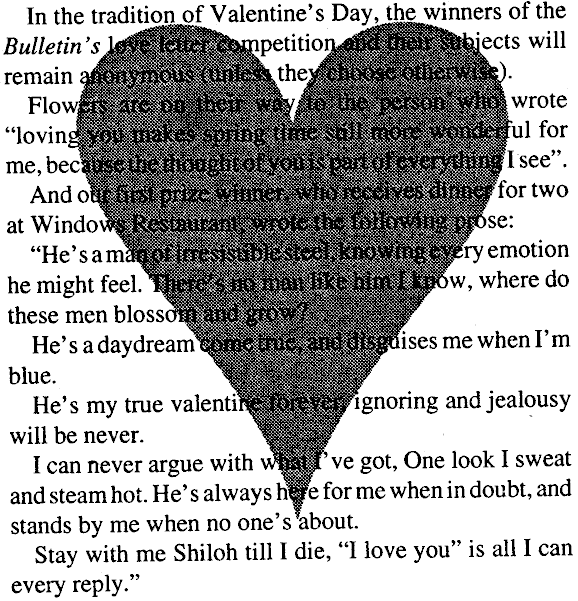 In the tradition of Valentine's Day, the winners of the
Bulletin's love letter competition and their subjects will
remain anonymous (unless they choose otherwise).
Flowers are on their way to the person who wrote
“loving you makes spring time still more wonderful for
me, because the thought of you is part of everything I see”.
And our first prize winner, who receives dinner for two
at Windows Restaurant, wrote the following prose:
“He's a man of irresistible steel, knowing every emotion
he might feel. There's no man like him I know, where do
these men blossom and grow?
He's a daydream come true, and disguises me when I'm
blue.
He's my true valentine forever, ignoring and jealousy
will be never.
I can never argue with what I've got, One look I sweat
and steam hot. He's always here for me when in doubt, and
stands by me when no one's about.
Stay with me Shiloh till I die, “I love you” is all I can
every reply.”